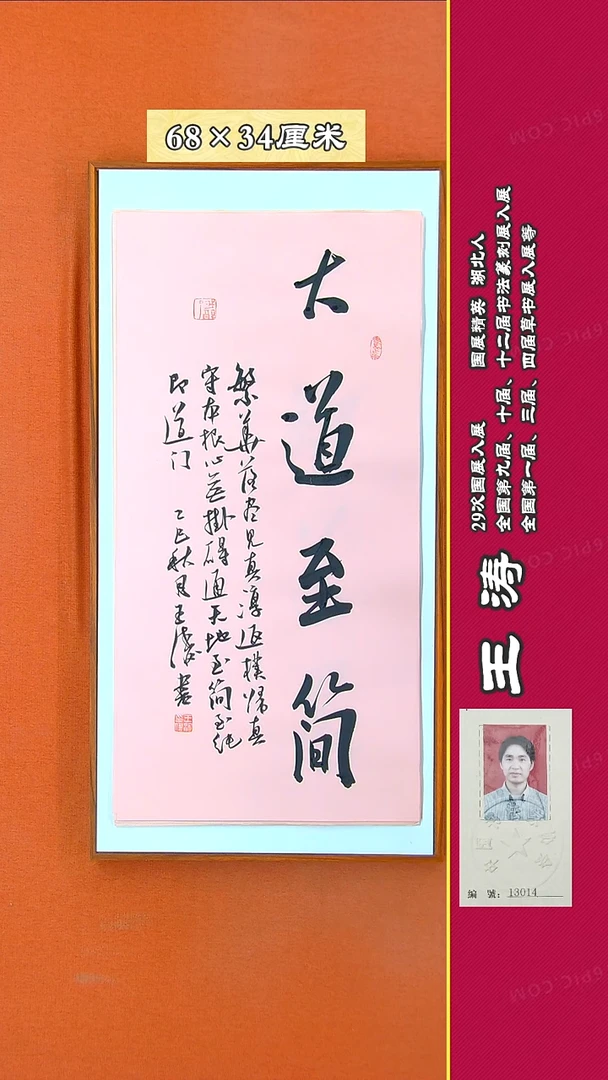 68×34厘米
大道至简
繁华落尽见真淳返朴归真
守本根心无掛碍通天地至简至纯
即道门
乙巳秋月王涛书
29次国展入展 国展精英 湖北人
全国第九届、十届、十二届书法篆刻展入展
全国第一届、三届、四届草书展入展等
王涛
编號：13014